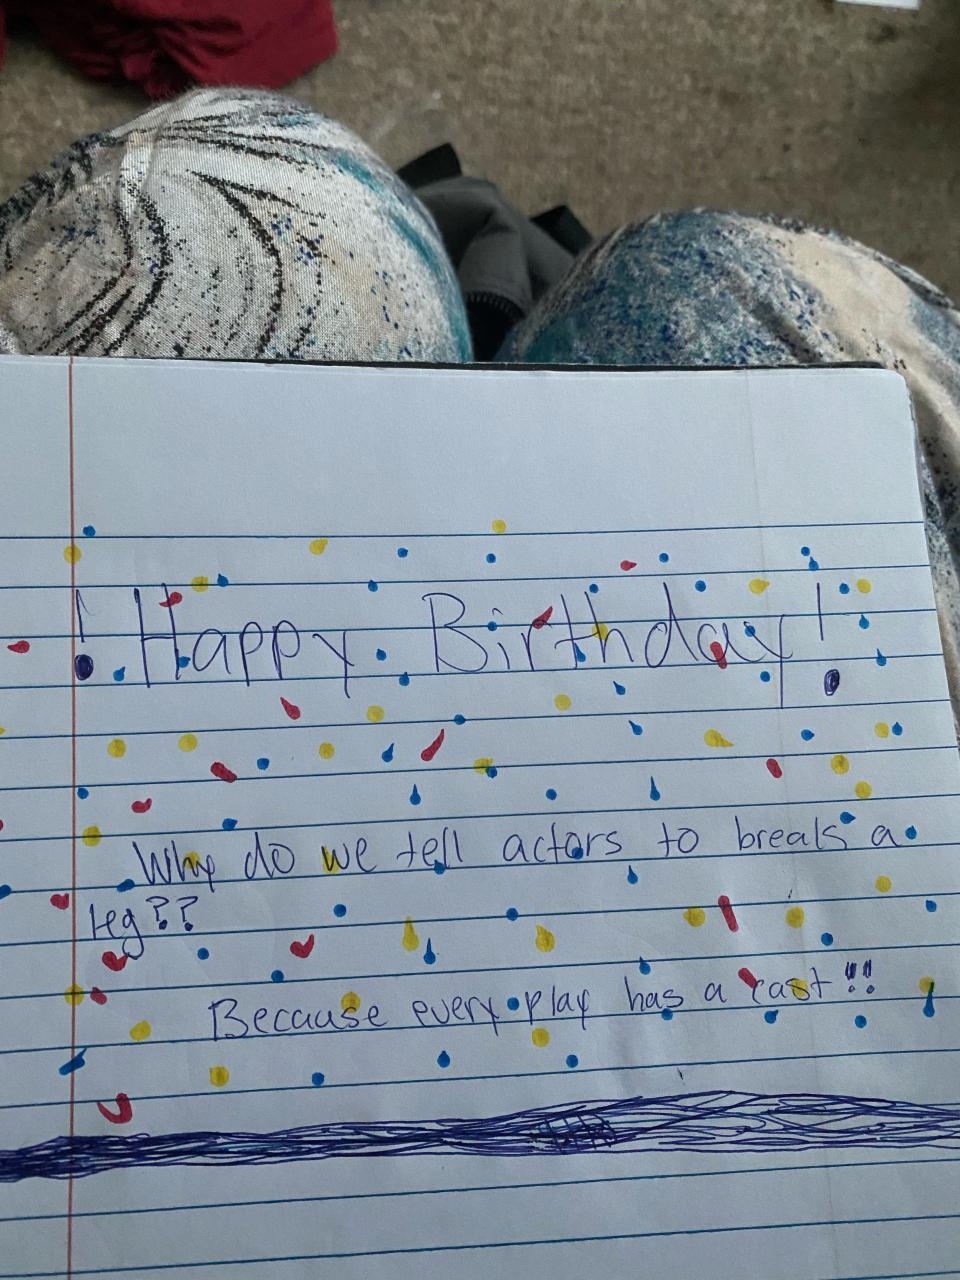 ! Happy Birthday!
Why do we tell actors to break a
leg??
Because every play has a cast!!